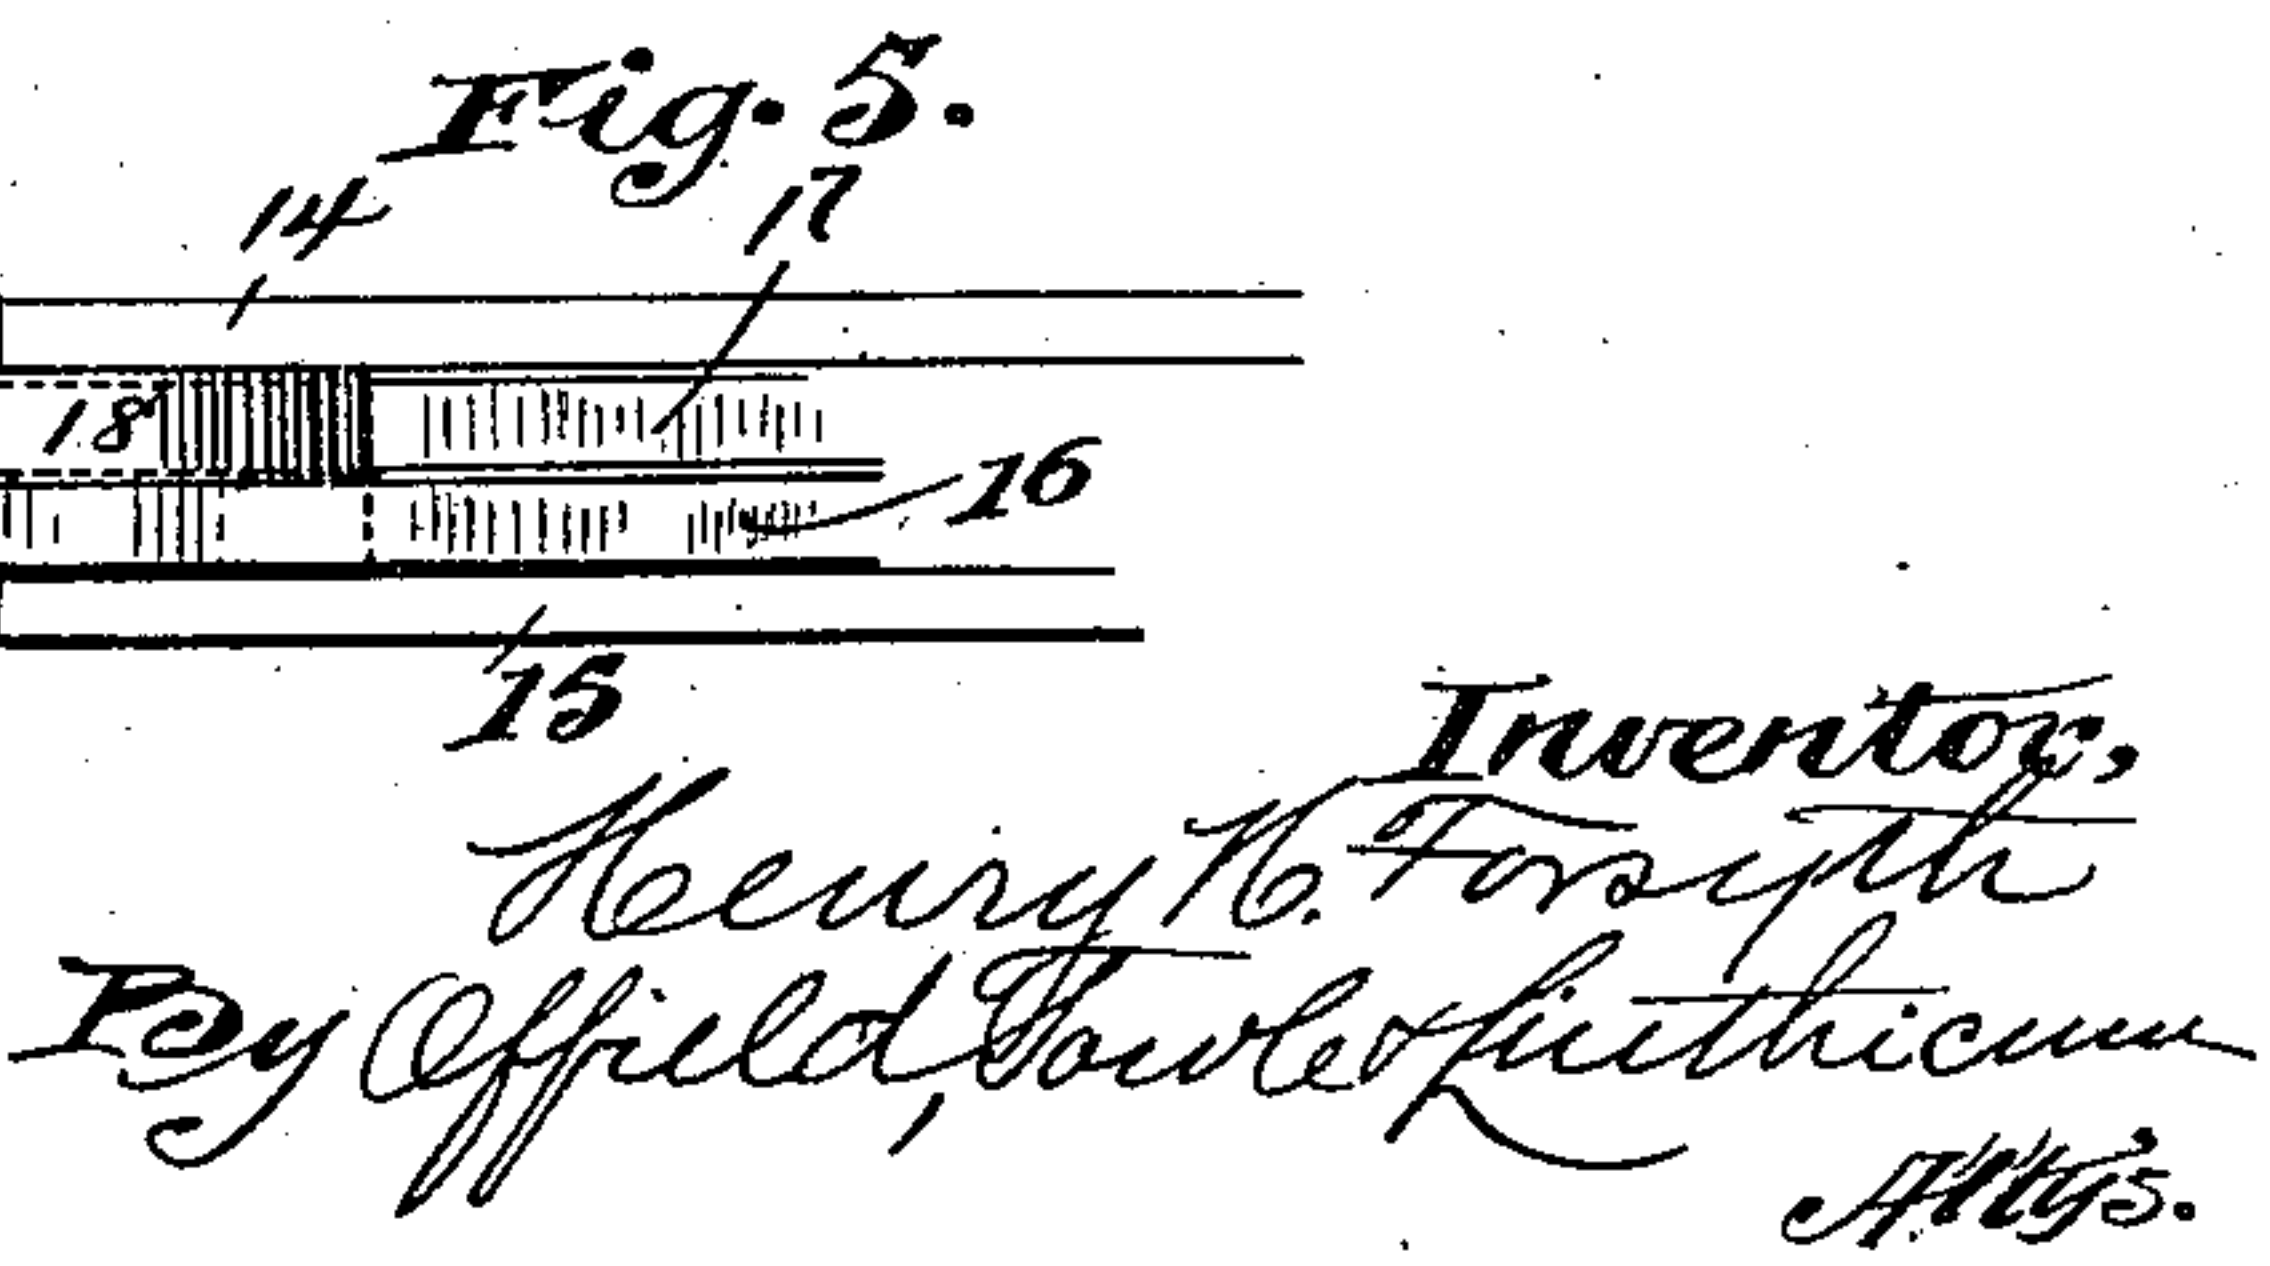 Fig. 5.
14 17
18
16
15
Inventor,
Henry H. Forsyth
By Offield, Towle & Linthicum
Att'ys.